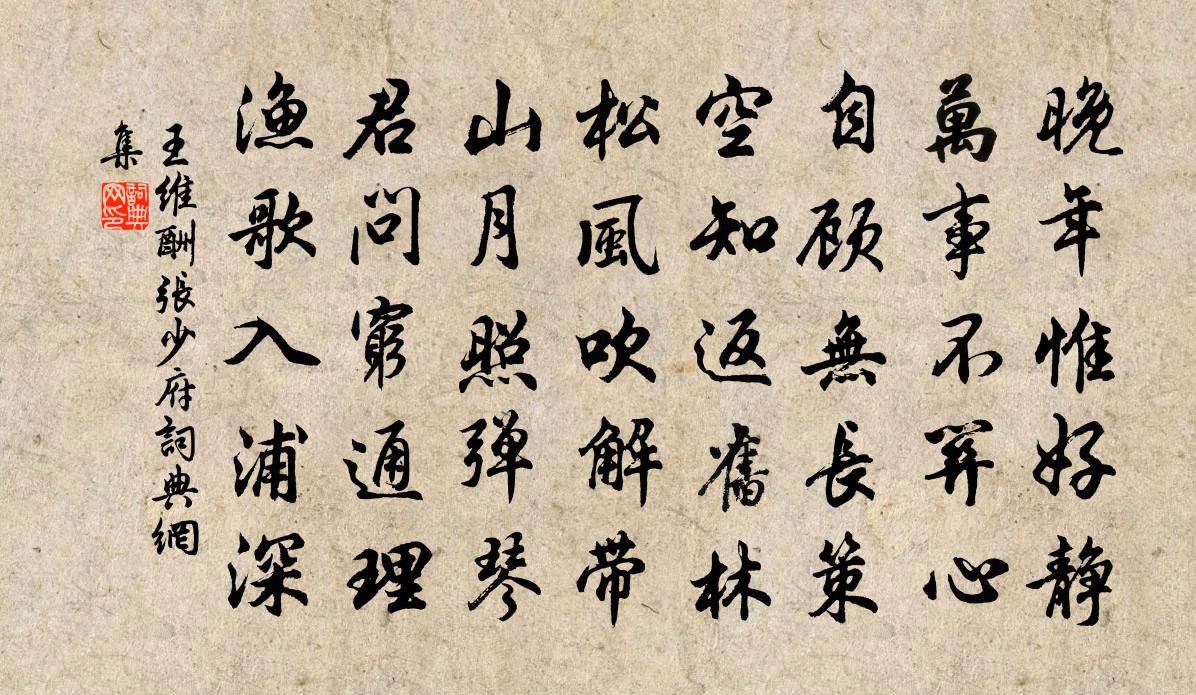 晚年惟好静
萬事不關心
自顾無長策
空知返舊林
松風吹解带
山月照弹琴
君问窮通理
漁歌入浦深
王維酬張少府詞典網
集
詞典网印